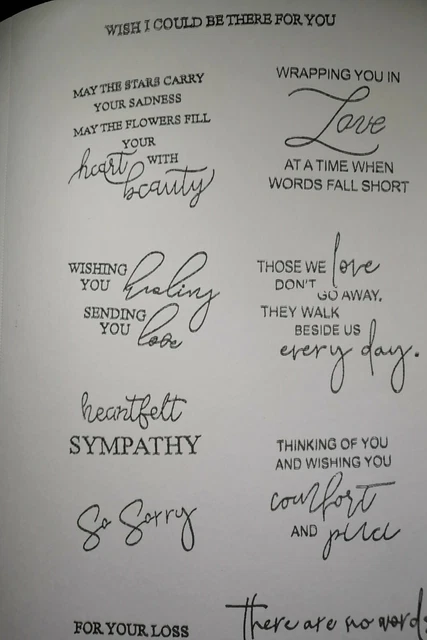 WISH I COULD BE THERE FOR YOU
MAY THE STARS CARRY
YOUR SADNESS
MAY THE FLOWERS FILL
YOUR
heart WITH
beauty
WRAPPING YOU IN
Love
AT A TIME WHEN
WORDS FALL SHORT
WISHING
YOU healing
SENDING
YOU love
THOSE WE love
DON'T
GO AWAY,
THEY WALK
BESIDE US
every day.
heartfelt
SYMPATHY
So Sorry
THINKING OF YOU
AND WISHING YOU
comfort
AND peace
FOR YOUR LOSS
there are no words